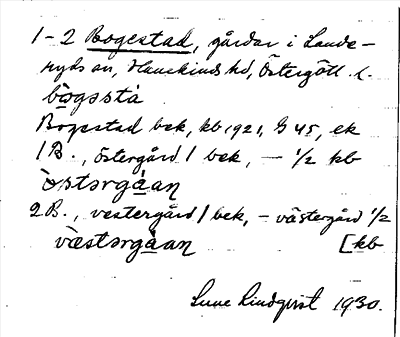 1-2 Bogestad, gårdar i Lande-
ryds sn, Hanekinds hd, Östergötl. l.
bògsstá
Bogestad bek, kb 1921, G 45, ek
1 B., östergård / bek, — 1/2 kb
òstərgáan
2 B., vestergård / bek, – västergård 1/2
væ̀stərgáan [kb
Sune Lindqvist 1930.